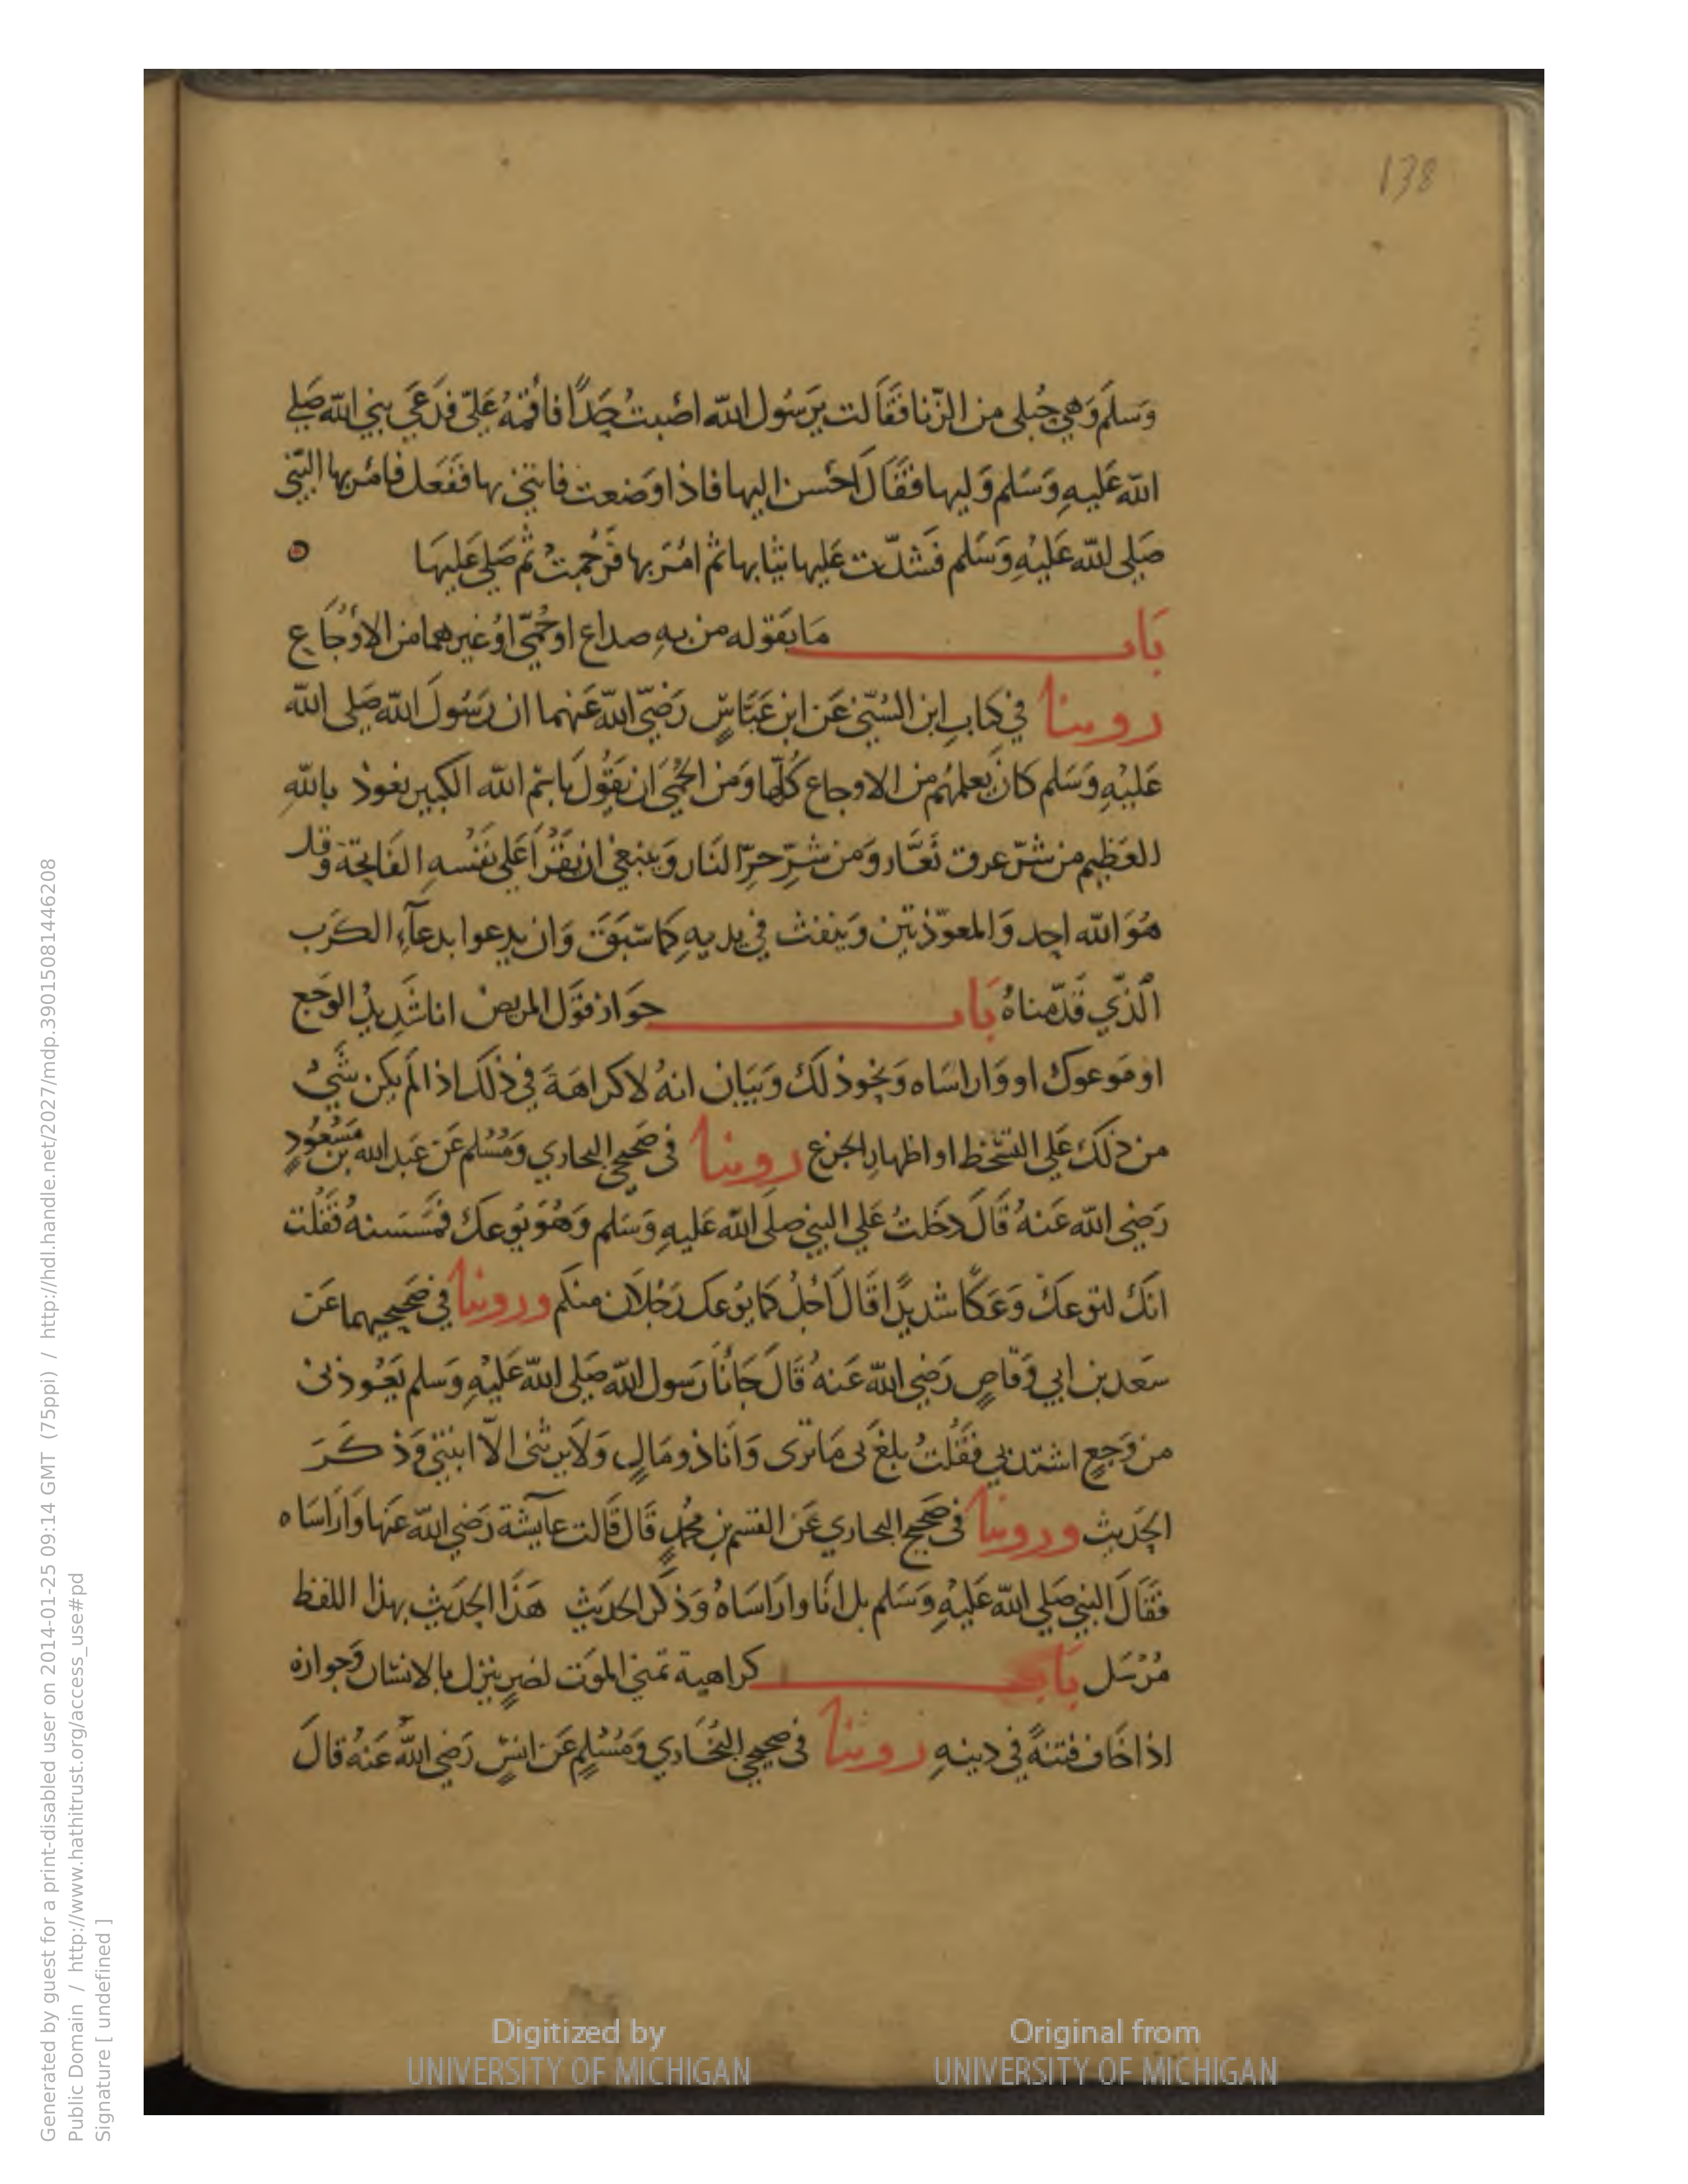 138
وَسلَم وَهي حُبلى من الزّنا فقَالت يرَسُول الله اصَبتُ حَدًا فاقمْهُ عَليّ فدَعَى بني الله صَلي
الله عَليهِ وَسَلم وَليها فقَالَ احْسن اليها فاذا وَضعت فاتني بها ففَعَل فامرَ بها النّبي
صَلي الله عَليْهِ وَسَلم فشدّت عَليها ثيابها ثم امرَ بها فرُجمتْ ثم صَلي عَليهَا
بَاب مَا يَقوله من بهِ صداع او حُمّى اوْ غيرهما من الاوْجَاع
روينا في كتابِ ابن السُنّي عَن ابن عَبّاسٍ رَضيَ الله عَنهما ان رَسُولَ الله صَلى الله
عَليْهِ وَسَلم كانَ يعلمهُم من الاوجاع كُلّها وَمن الحمّىَ ان يَقُولَ باسْم الله الكبير نعوذ بالله
العَظِيم من شرّ عرق نَعَّار وَمن شرّ حرّ النَار وَينبغي ان يَقْرَأ عَلي نَفْسهِ الفَاتحَة وقل
هُوَ الله احد وَالمعَوّذتين وَينفث في يديهِ كما سَبَقَ وَان يدعوا بدعآءِ الكَرب
الّذي قدّمناهُ بَاب جوَاز قوَل المريض انا شَديدُ الوَجَع
او مَوعوك او وَاراسَاه وَنحوذلكَ وَبَيَان انهُ لا كراهَةَ في ذلكَ اذا لم يكن شَيْ
من ذلكَ عَلي التسَخط او اظهارِ الجزع روينا في صَحيحي البخاري وَمُسْلم عَن عَبد الله بن مَسْعُودٍ
رَضي الله عَنهُ قَالَ دخَلتُ عَلي النبي صلي الله عَليهِ وَسَلم وَهُوَ يوعكَ فمسَسته فقُلت
انكَ لتوعكَ وَعَكًا شديدًا قَالَ اجَلْ كما يوُعك رَجُلان منكم وروينا في صَحيحيهما عَن
سَعد بن ابي وَقّاصٍ رَضي الله عَنهُ قَالَ جَانَا رَسول الله صَلي الله عَليْهِ وَسلم يَعُوذنى
من وَجَعٍ اشتد بي فقُلتُ بلغَ بي مَا ترى وَانَا ذو مَالٍ وَلَا يرثنى الّا ابنتي وَذكَرَ
الحَديث وروينا في صَحيح البخاري عَن القسم بن مُحمدٍ قَالَ قَالت عآيشة رَضي الله عَنها وَارَاسَاه
فقَالَ النبي صَلي الله عَليْهِ وَسَلم بل انَا وارَاسَاهُ وَذكَر الحديث هَذَا الحَديث بهذا اللفظ
مُرْسَل بَاب كراهية تمني الموَت لضرٍ ينزل بالانسان وَجوازه
اذا خَاف فتنةً في دينهِ روينا في صَحيحي البُخَاري وَمُسْلمٍ عَن انسٍ رَضي الله عَنهُ قالَ
Digitized by Original from
UNIVERSITY OF MICHIGAN UNIVERSITY OF MICHIGAN
Generated by guest for a print-disabled user on 2014-01-25 09:14 GMT (75ppi) / http://hdl.handle.net/2027/mdp.39015081446208
Public Domain / http://www.hathitrust.org/access_use#pd
Signature [ undefined ]